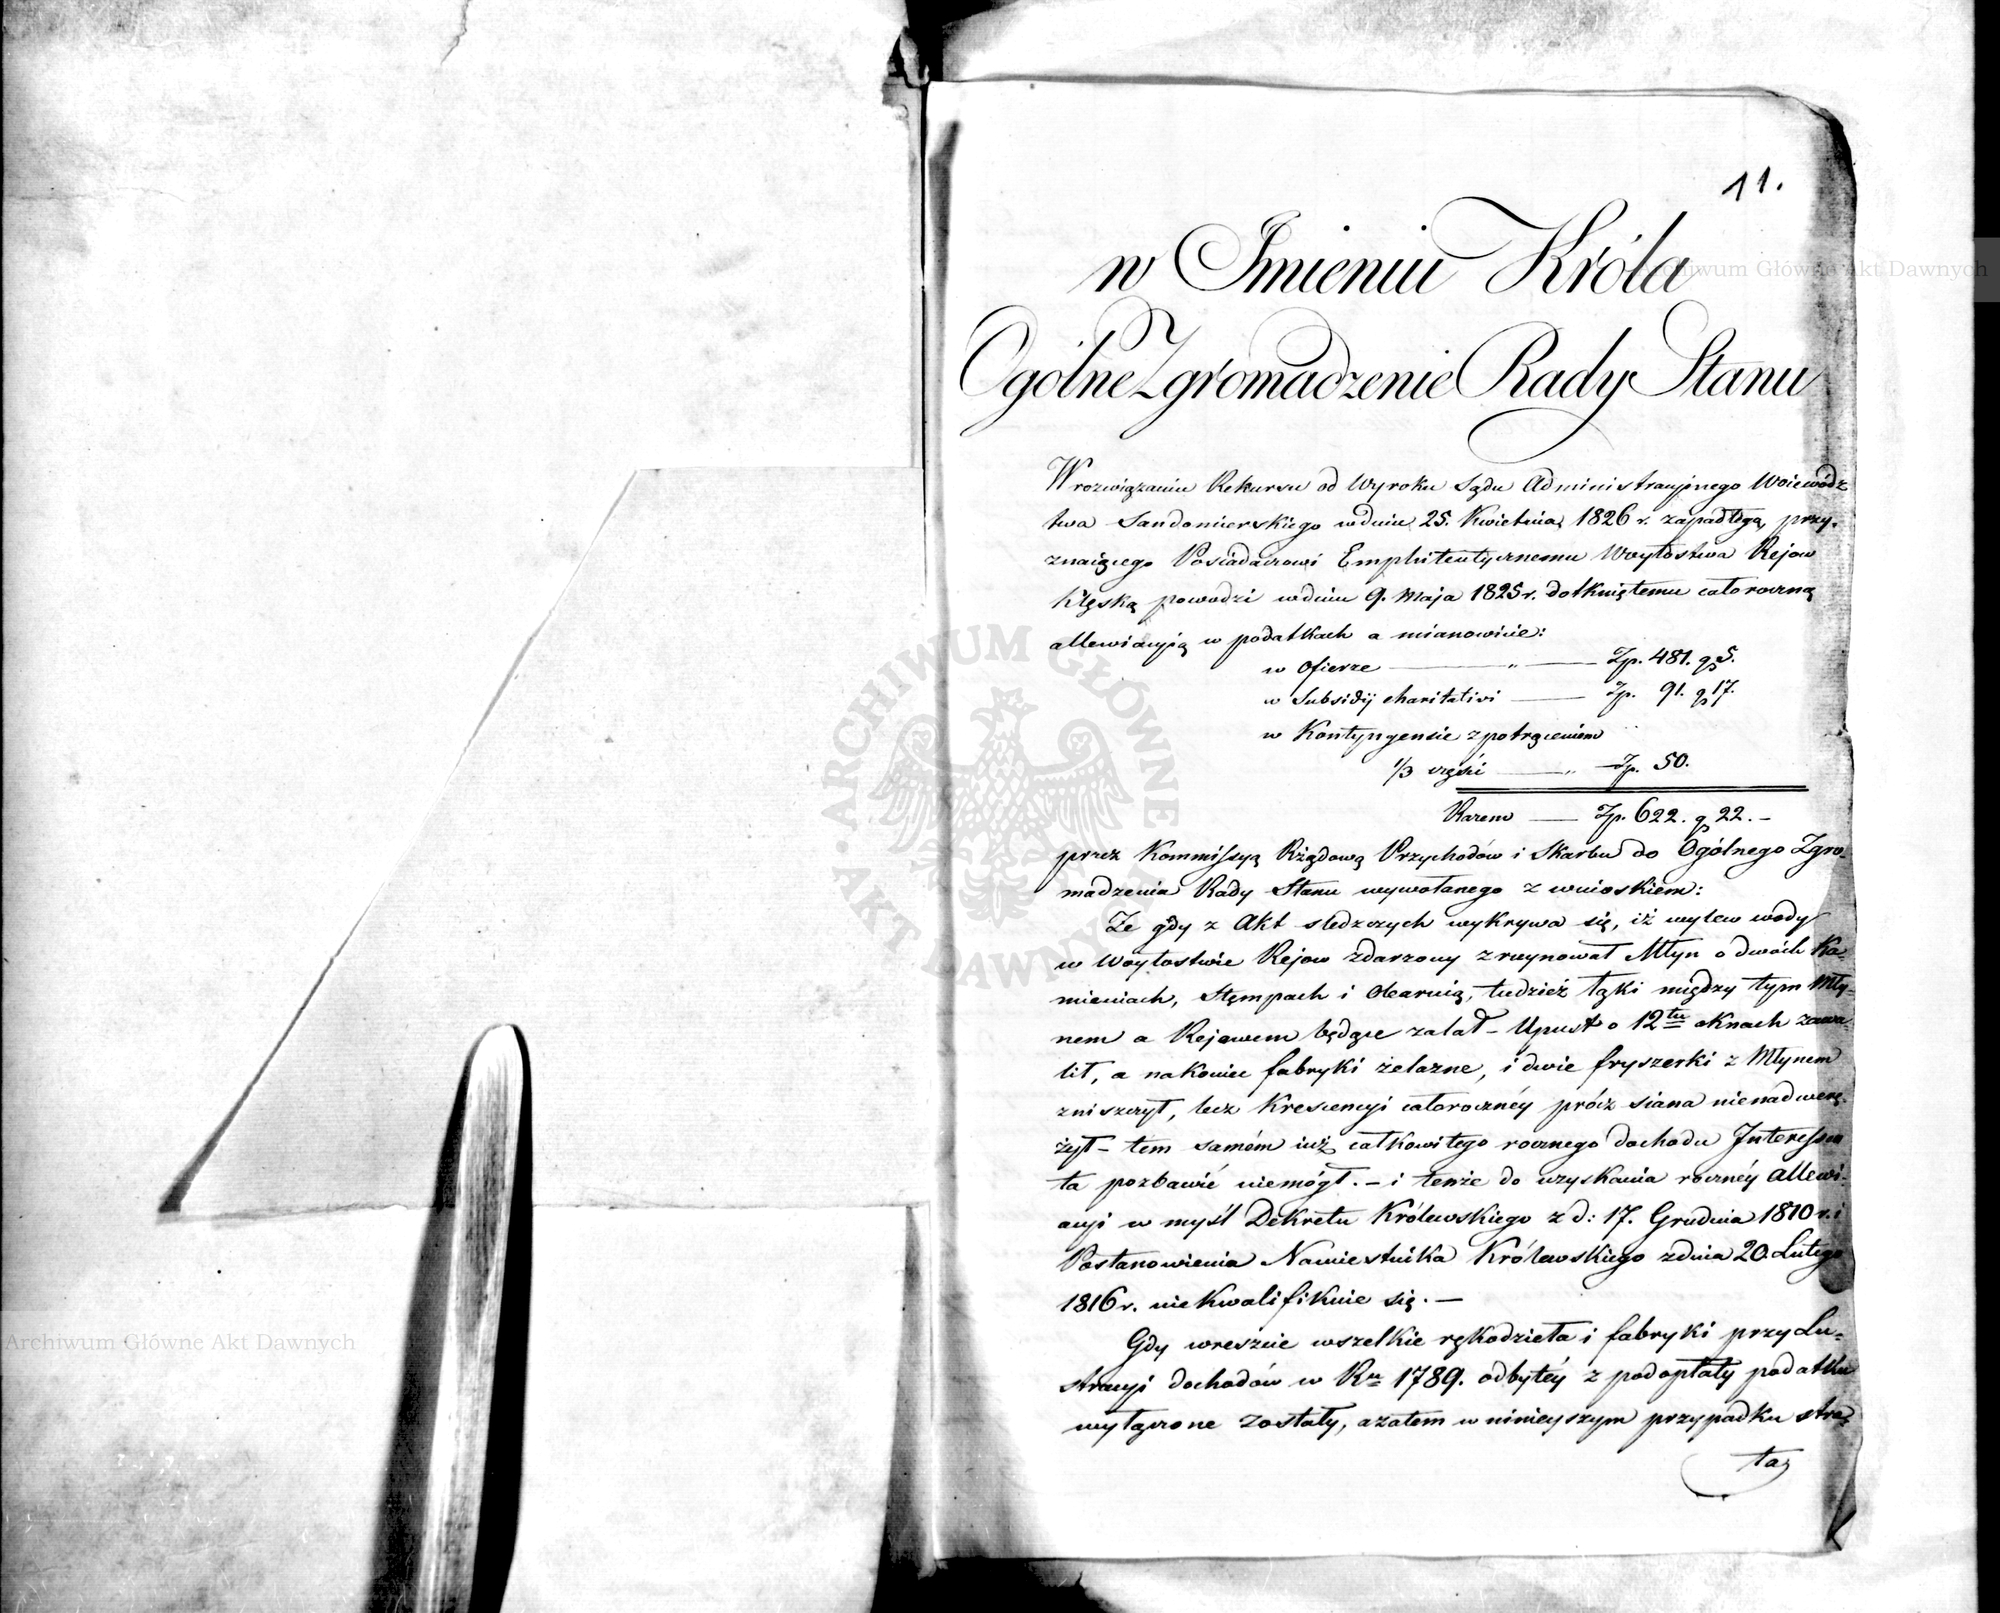 11.
w Imieniu Króla
Ogólne Zgromadzenie Rady Stanu
W rozwiązaniu Rekursu od Wyroku Sądu Administracyinego Woiewódz
twa Sandomierskiego w dniu 25. Kwietnia 1826 r. zapadłego, przy-
znaiącego Posiadaczowi Emphiteutycznemu Woytostwa Rejow
klęską powodzi w dniu 9. Maja 1825 r. dotkniętemu całoroczną
allewiacyią w podatkach a mianowicie:
w Ofierze — " — Zp. 481. g 5.
w Subsidij charitativi — Zp. 91. g 17.
w Kontyngensie z potrąceniem
1/3 części — " — Zp. 50.
Razem — Zp. 622. g 22. —
przez Kommissyą Rządową Przychodów i Skarbu do Ogólnego Zgro-
madzenia Rady Stanu wywołanego z wnioskiem:
Że gdy z Akt sledzczych wykrywa się, iż wylew wody
w Woytostwie Rejow zdarzony zruynował Młyn o dwóch Ka-
mieniach, Stęmpach i Olearnią, tudzież łąki między tym Mły-
nem a Rejowem będące zalał — Upust o 12tu oknach zawa-
lił, a nakoniec fabryki żelazne, i dwie fryszerki z Młynem
zniszczył, lecz Krescencyi całorocznéy prócz siana nienadwerę-
żył — tem samém iuż całkowitego rocznego dochodu Interessen
ta pozbawić niemógł. — i tenże do uzyskania rocznéy allewi-
acyi w myśl Dekretu Królewskiego z d: 17. Grudnia 1810 r. i
Postanowienia Namiestnika Królewskiego z dnia 20. Lutego
1816 r. niekwalifikuie się. —
Gdy wreszcie wszelkie rękodzieła i fabryki przy Lu-
stracyi dochodów w Ru 1789. odbytéy z pod opłaty podatku
wyłączone zostały, a zatem w ninieyszym przypadku stra-
ta
ARCHIWUM GŁÓWNE AKT DAWNYCH
Archiwum Główne Akt Dawnych
Archiwum Główne Akt Dawnych